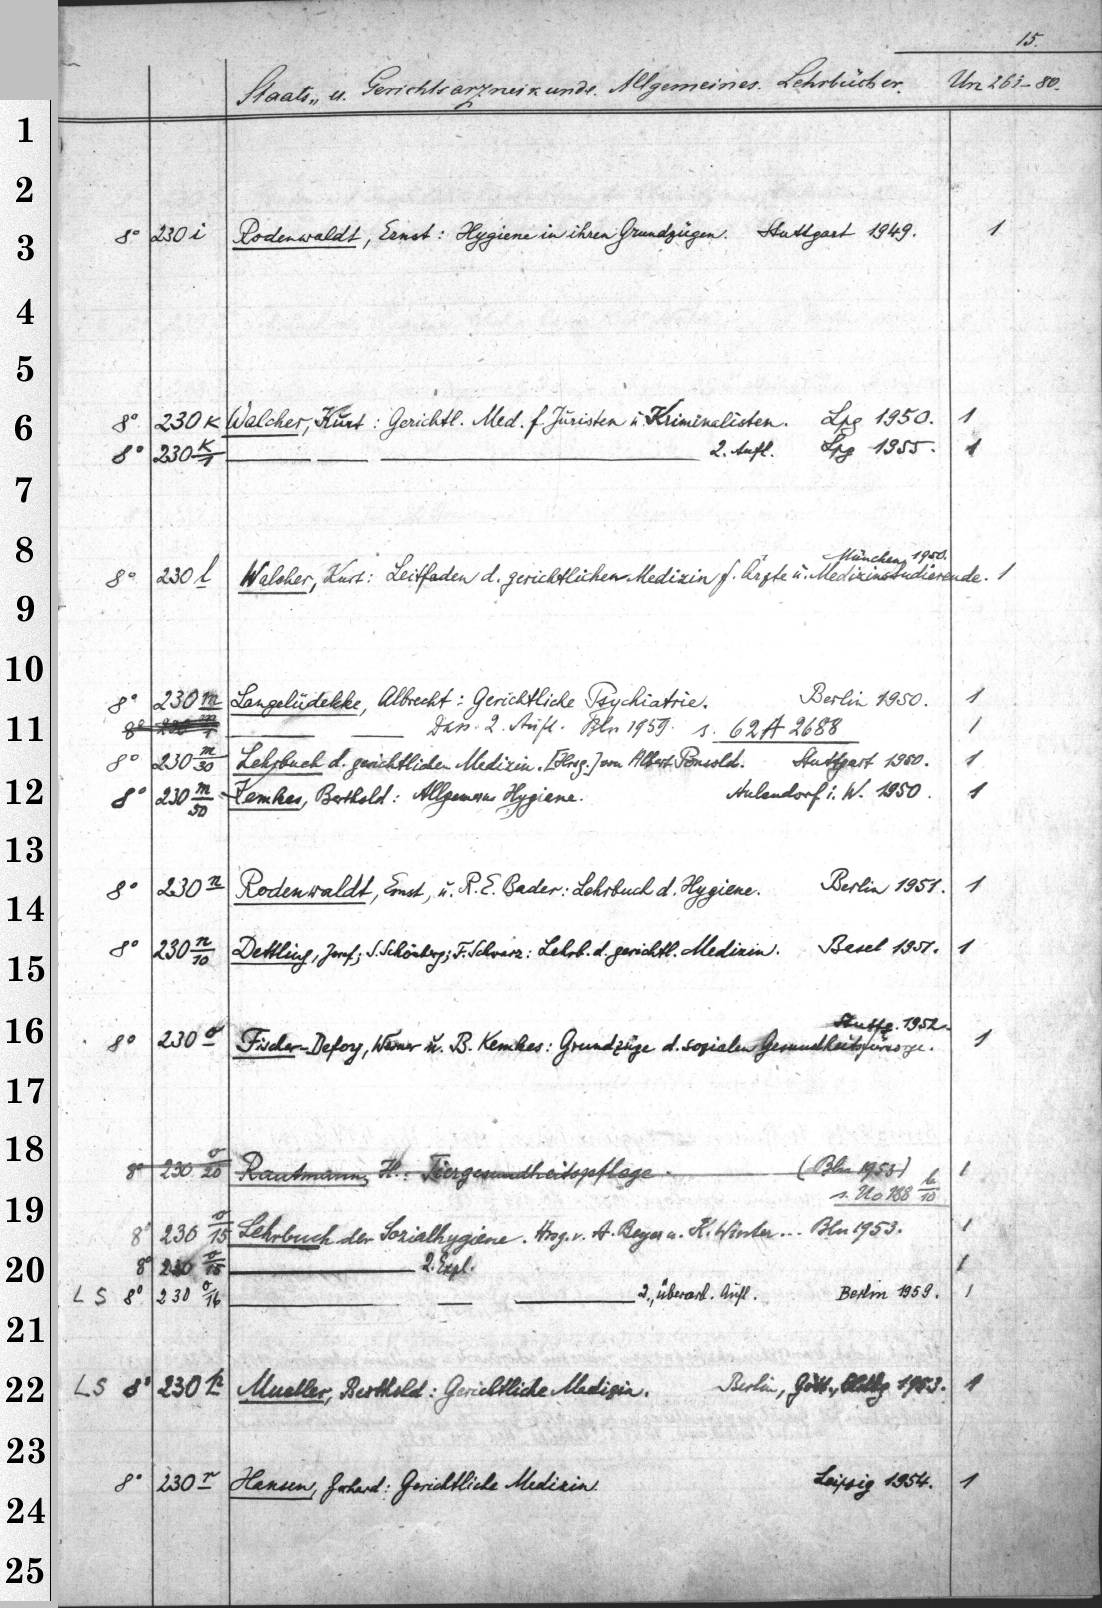 15.
Staats- u. Gerichtsarzneikunde. Allgemeines. Lehrbücher. Un 261-80.
1
2
3 8° 230 i Rodenwaldt, Ernst: Hygiene in ihren Grundzügen. Stuttgart 1949. 1
4
5
6 8° 230 k Walcher, Kurt: Gerichtl. Med. f. Juristen u. Kriminalisten. Lpg 1950. 1
8° 230 k/1 — — — 2. Aufl. Lpg 1955. 1
7
8 München 1950.
8° 230 l Walcher, Kurt: Leitfaden d. gerichtlichen Medizin f. Ärzte u. Medizinstudierende. 1
9
10
8° 230 m Langelüdekke, Albrecht: Gerichtliche Psychiatrie. Berlin 1950. 1
11 8° 230 m/1 — — Dass. 2. Aufl. Bln 1959. s. 62 A 2688 1
8° 230 m/30 Lehrbuch d. gerichtlichen Medizin. [Hrsg.] von Albert Ponsold. Stuttgart 1950. 1
12 8° 230 m/50 Kemkes, Berthold: Allgemeine Hygiene. Aulendorf i. W. 1950. 1
13
14 8° 230 n Rodenwaldt, Ernst, u. R. E. Bader: Lehrbuch d. Hygiene. Berlin 1951. 1
15 8° 230 n/10 Dettling, Josef; S. Schönberg; F. Schwarz: Lehrb. d. gerichtl. Medizin. Basel 1951. 1
16 Stuttg. 1952.
8° 230 o Fischer-Defoy, Werner u. B. Kemkes: Grundzüge d. sozialen Gesundheitsfürsorge. 1
17
18 8° 230 o/20 Rautmann, H.: Tiergesundheitspflege. (Bln 1953) 1
s. Uo 188 b/10
19 8° 230 o/15 Lehrbuch der Sozialhygiene. Hrsg. v. A. Beyer u. K. Winter... Bln 1953. 1
20 8° 230 o/15 — 2. Expl. 1
LS 8° 230 o/16 — — — 2., überarb. Aufl. Berlin 1959. 1
21
22 LS 8° 230 p Mueller, Berthold: Gerichtliche Medizin. Berlin, Gött., 1953. 1
23
8° 230 r Hansen, Gerhard: Gerichtliche Medizin. Leipzig 1954. 1
24
25